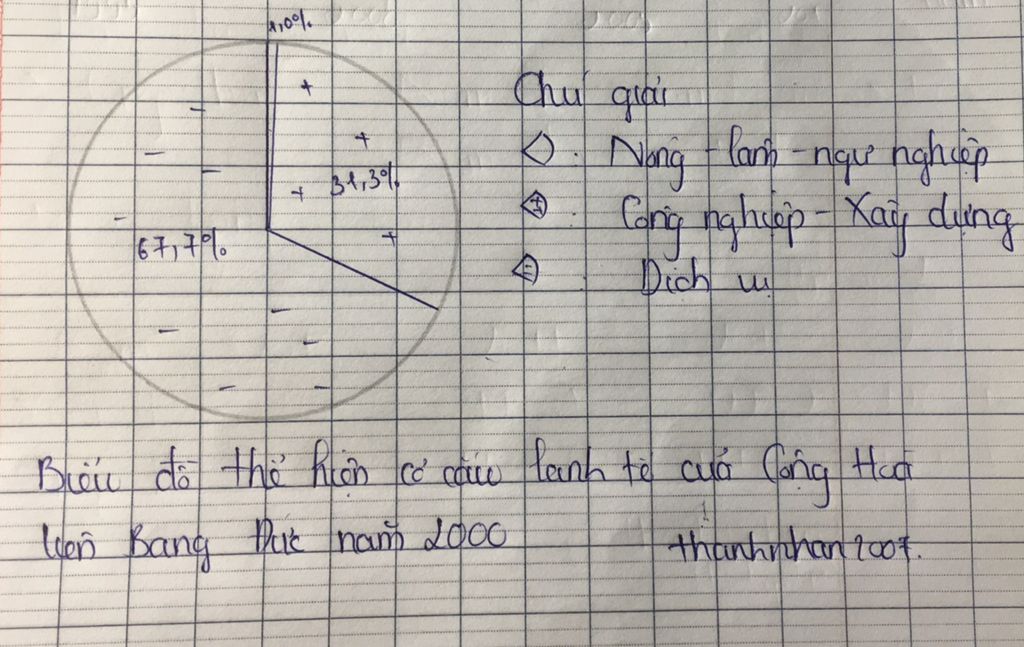 1,0%
31,3%
67,7%
Chú giải
Nông - lâm - ngư nghiệp
Công nghiệp - Xây dựng
Dịch vụ
Biểu đồ thể hiện cơ cấu kinh tế của Cộng Hoà
Liên Bang Đức năm 2000
thanhnhan2007.